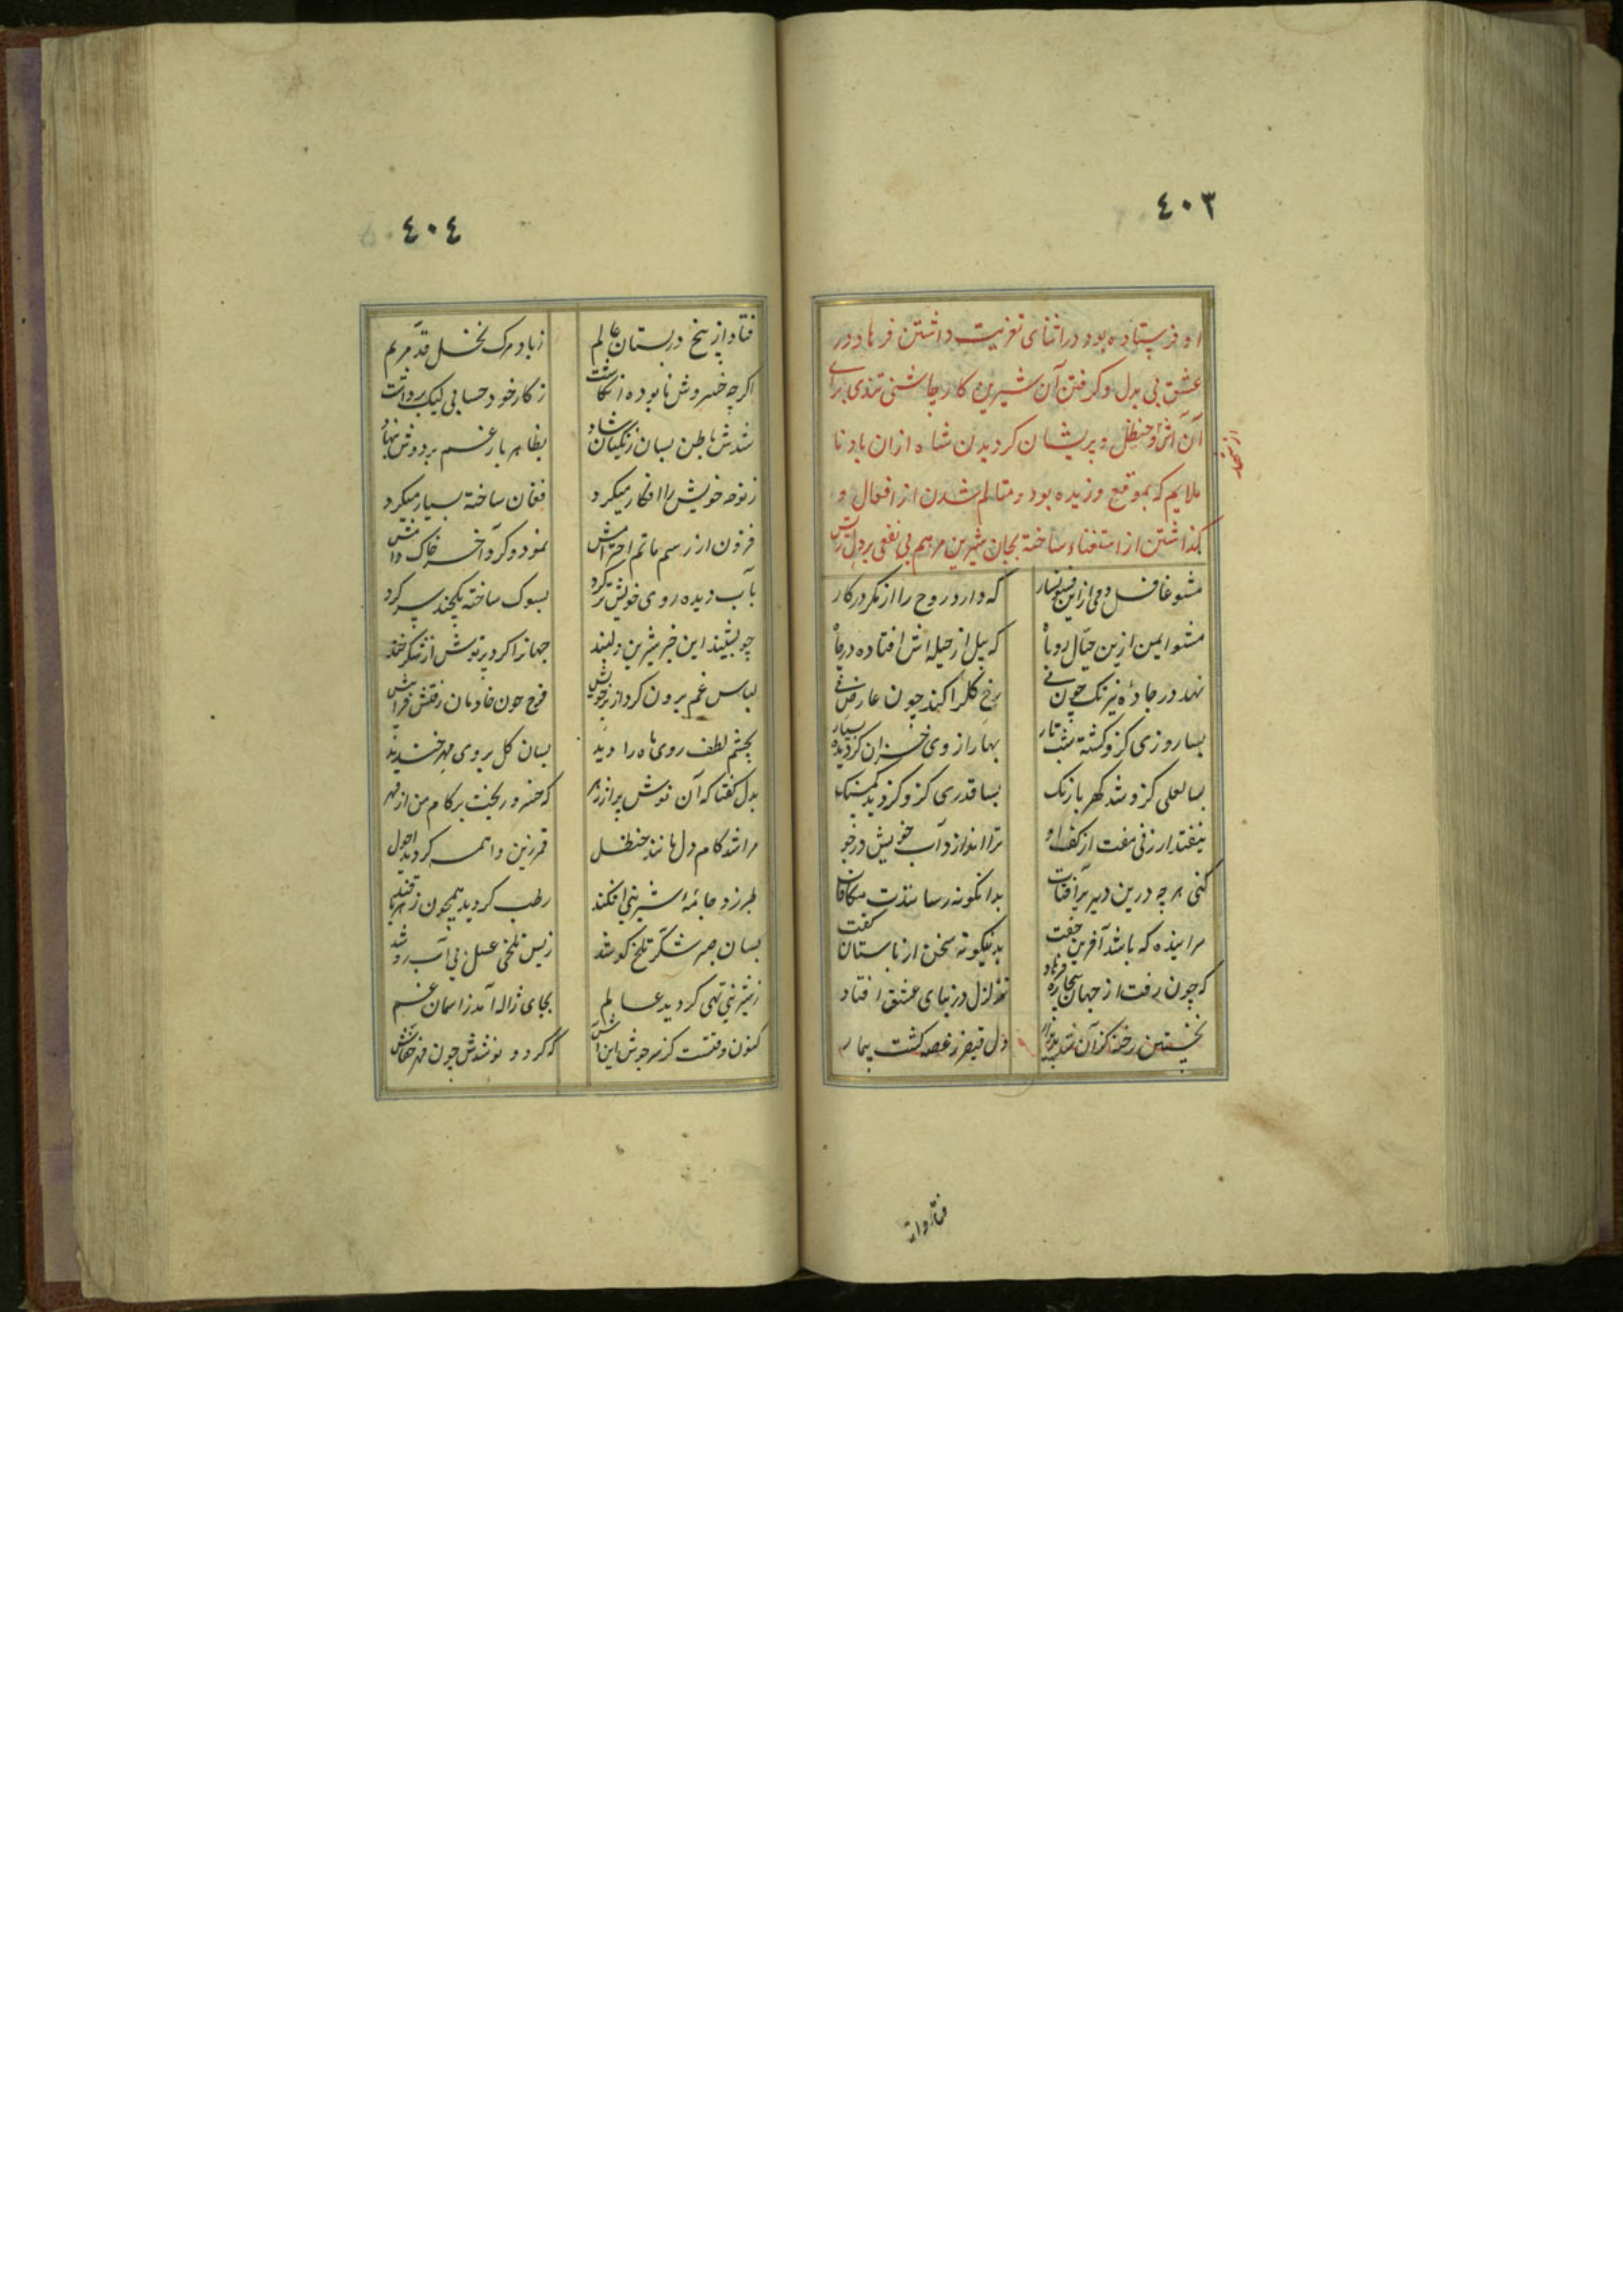 ٤٠٣
او فرستاده بود در اثنای تعزیت داشتن فرهاد در
عشق بی بدل و گرفتن آن شیرین کار چاشنی تندی برای
آن و حنظل و پریشان کردیدن شاه ازان باد نا
ملایم که بموقع وزیده بود و متالم شدن از افعال و
گذاشتن از استغناء ساخته بجان شیرین مرهم بی نفعی بر دل
مشو غافل دمی از این که دارد روح را از مکر در کار
مشو ایمن ازین حیال روباه که پیل از حیله اش افتاده در چاه
نهد در جاده نیرنک چون رخ کل را کند چون عارض
بسا روزی کزو کشته شب تار بهار از وی خزان کردیده بسیار
بسا لعلی کزو شد کهربا رنک بسا قدری کزو کردید کمسنک
نیفتد ارزنی مفت از کف او ترا اندازد آب خویش در جو
کنی هر چه درین دیر پر آفات بدانکونه رساندت مکافات
سراینده که باشد آفرین جفت بدینکونه سخن از باستان کفت
که چون رفت از جهان بیچاره فرهاد تزلزل در بنای عشق افتاد
نخستین رخنه کز آن شد دل قیصر ز غصه کشت بیمار
فتاد از
٤٠٤
فتاد از بیخ در بستان عالم ز باد مرک نخل قد مریم
اکرچه خسروش نابوده انکاشت ز کار خود حسابی لیک برداشت
شدش باطن بسان زنکیان شاد بظاهر بار غم بر دوش بنهاد
ز نوحه خویش را افکار میکرد فغان ساخته بسیار میکرد
فزون از رسم ماتم احترامش نمود و کرد آخر خاک
بآب دیده روی خویش تر کرد بسوک ساخته یکچند سر کرد
چو بشنید این خبر شیرین دلبند جهانرا کرد پر نوش از شکرخند
لباس غم برون کرد از بر خویش فرح چون خادمان رفتش فرا پیش
بچشم لطف روی ماه را دید بسان کل بروی مهر خندید
بدل کفتا که آن نوش پر از زهر که خسرو ریخت بر کام من از قهر
مرا شد کام دل مانند حنظل قمر زین واهمه کردید احول
طبرزد جامه شیرینی افکند رطب کردید همچون زهر با قند
بسان صبر شکر تلخ کو شد ز بس تلخی عسل بی آب رو شد
ز شیرینی تهی کردید عالم بجای ژاله آمد ز آسمان غم
کنون وقتست کز سرجوش این آش که کردد نوشدش چون